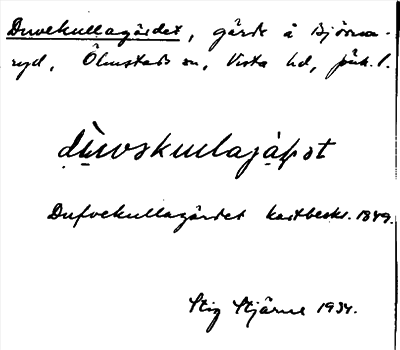 Duvekullagärdet, gärde å Björsa-
ryd, Ölmstads sn, Vista hd, Jönk. l.
dùvskulajạ́ḷət
Dufvekullagärdet kartbeskr. 1849.
Stig Stjärne 1934.